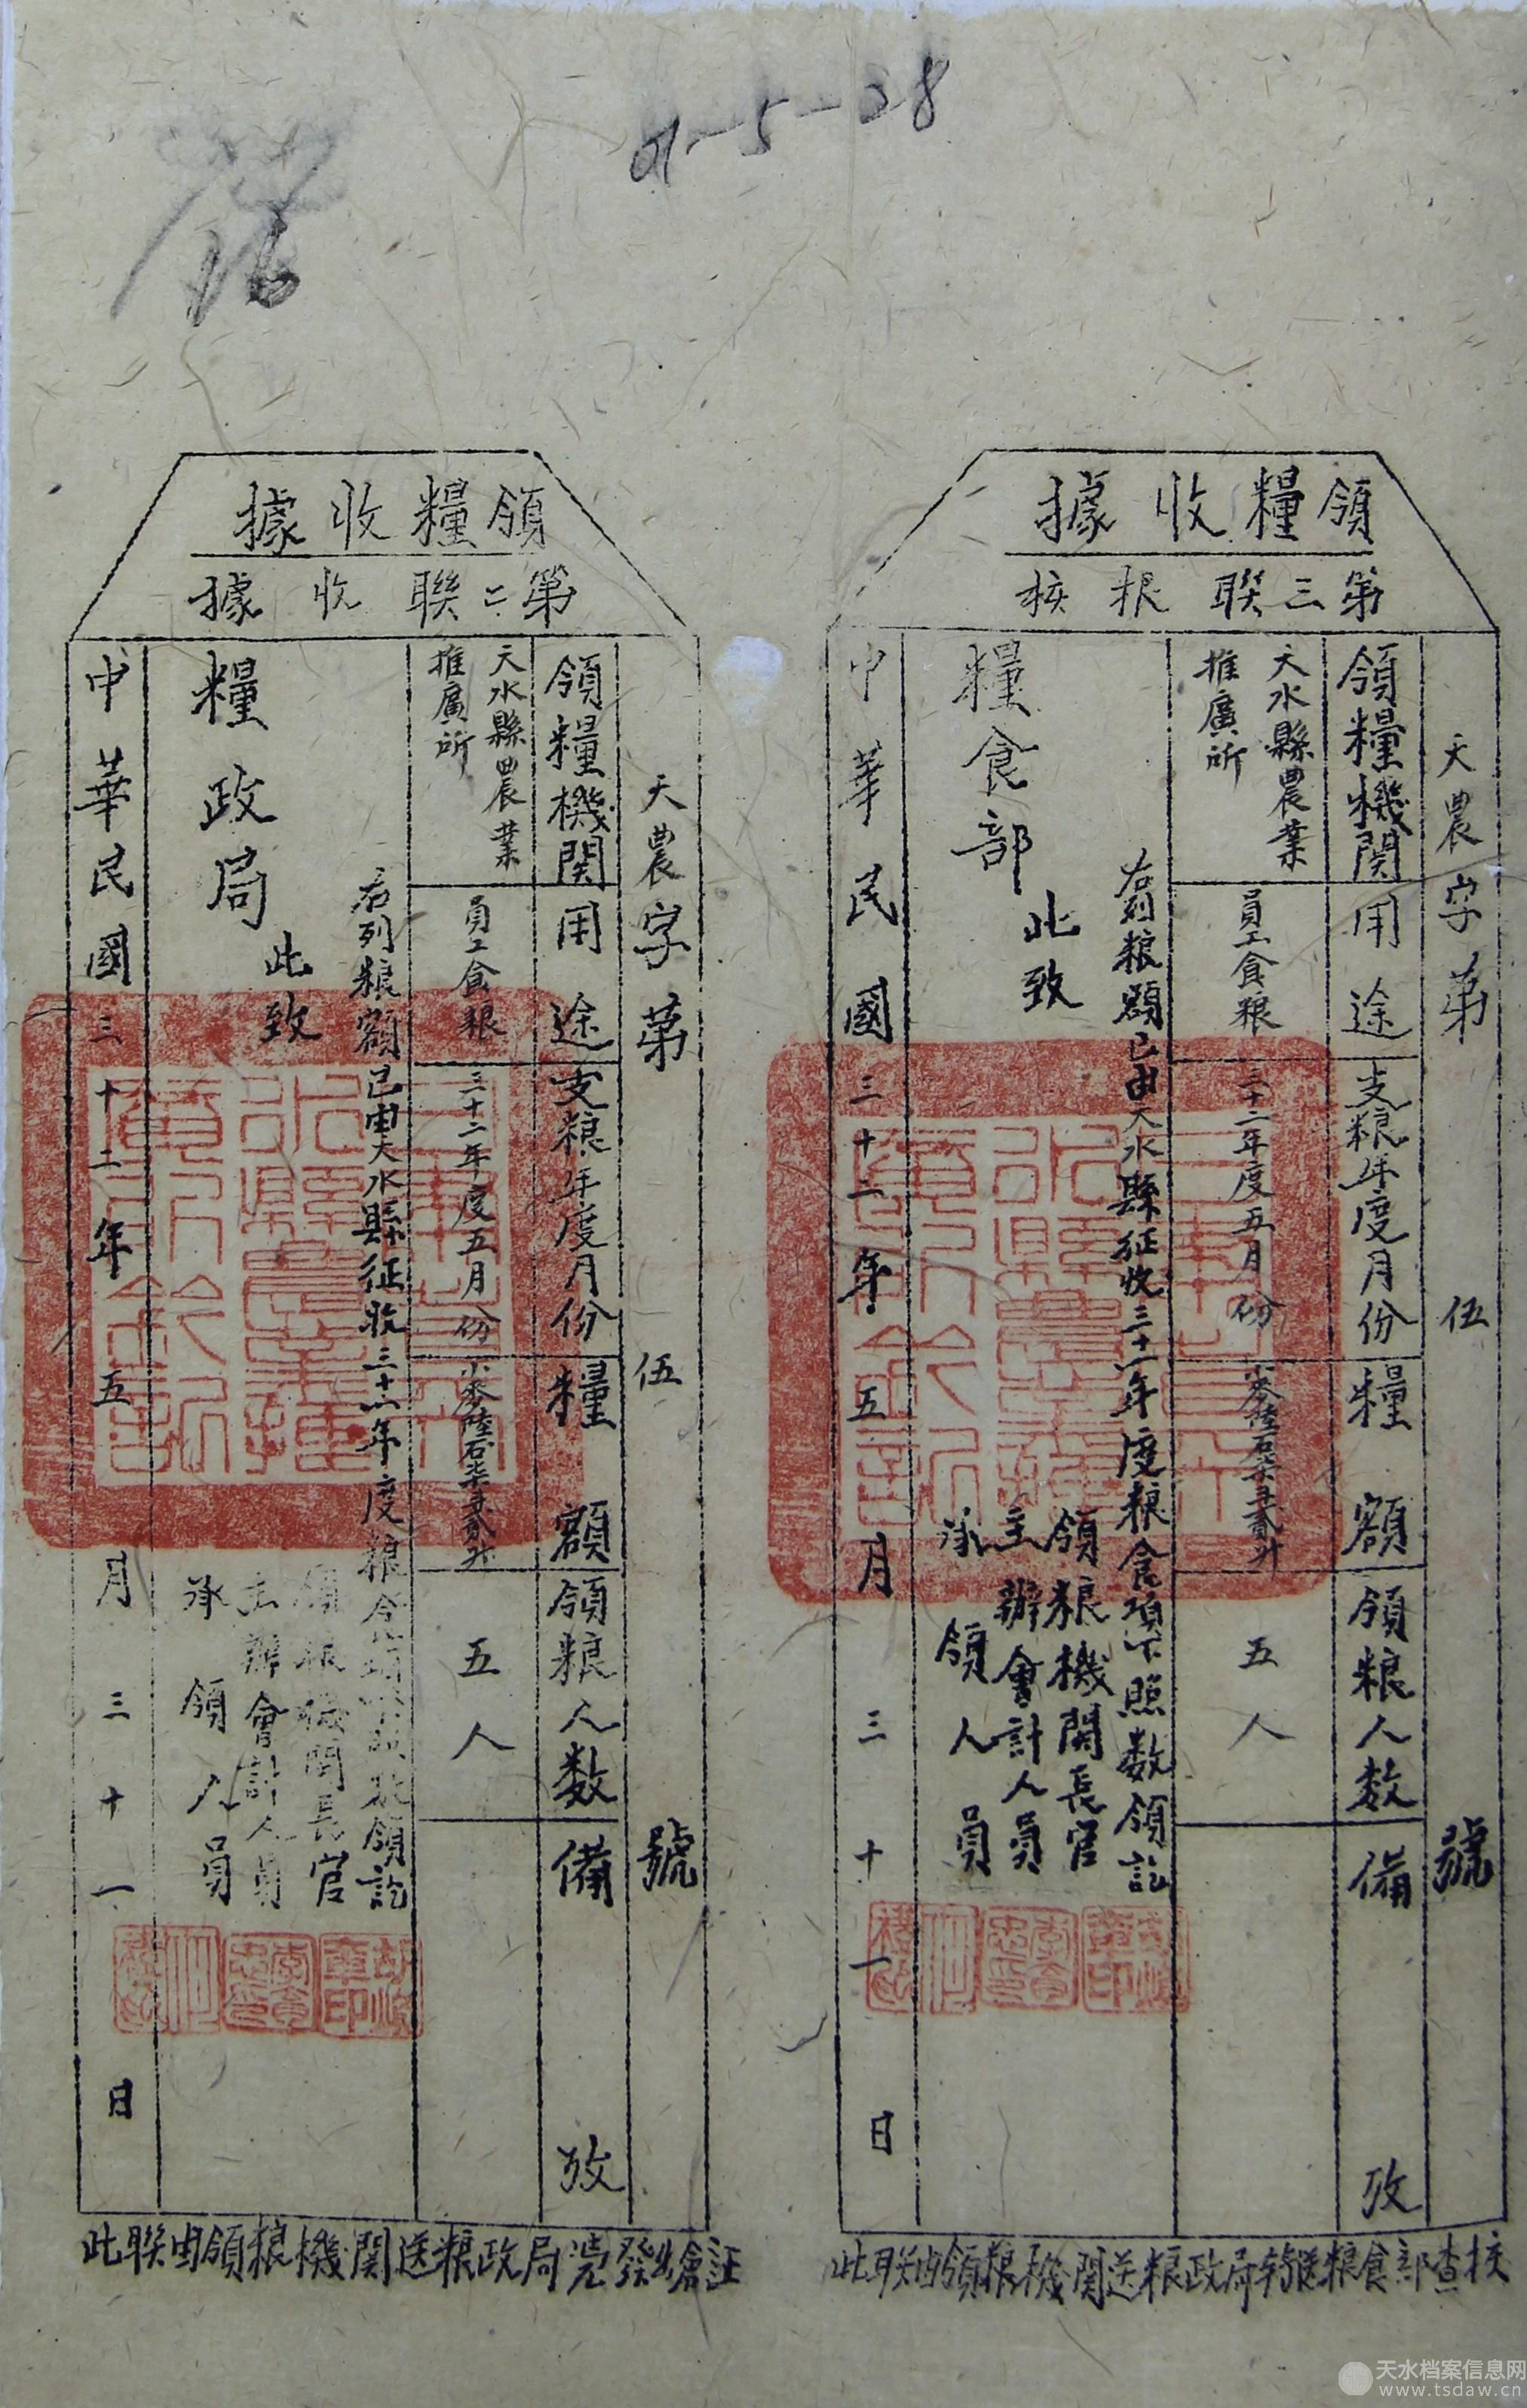 01-5-28
16
領糧收據
第三聯報核
天農字第伍號
領糧機関
用途
支粮年度月份
糧額
領粮人数
備攷
天水縣農業
推廣所
員工食粮
三十二年度五月份
小麥陸石柒斗貳升
五人
右列粮額已由天水縣征收三十一年度粮食項下照数領訖
此致
糧食部
領粮機関長官
主辦會計人員
承領人員
中華民國三十二年五月三十一日
此联由領粮機関送粮政局轉送粮食部查核
領糧收據
第二聯收據
天農字第伍號
領糧機関
用途
支粮年度月份
糧額
領粮人数
備攷
天水縣農業
推廣所
員工食粮
三十二年度五月份
小麥陸石柒斗貳升
五人
右列粮額已由天水縣征收三十一年度粮食項下照数領訖
此致
糧政局
領粮機関長官
主辦會計人員
承領人員
中華民國三十二年五月三十一日
此联由領粮機関送粮政局
天水档案信息网
www.tsdaw.cn